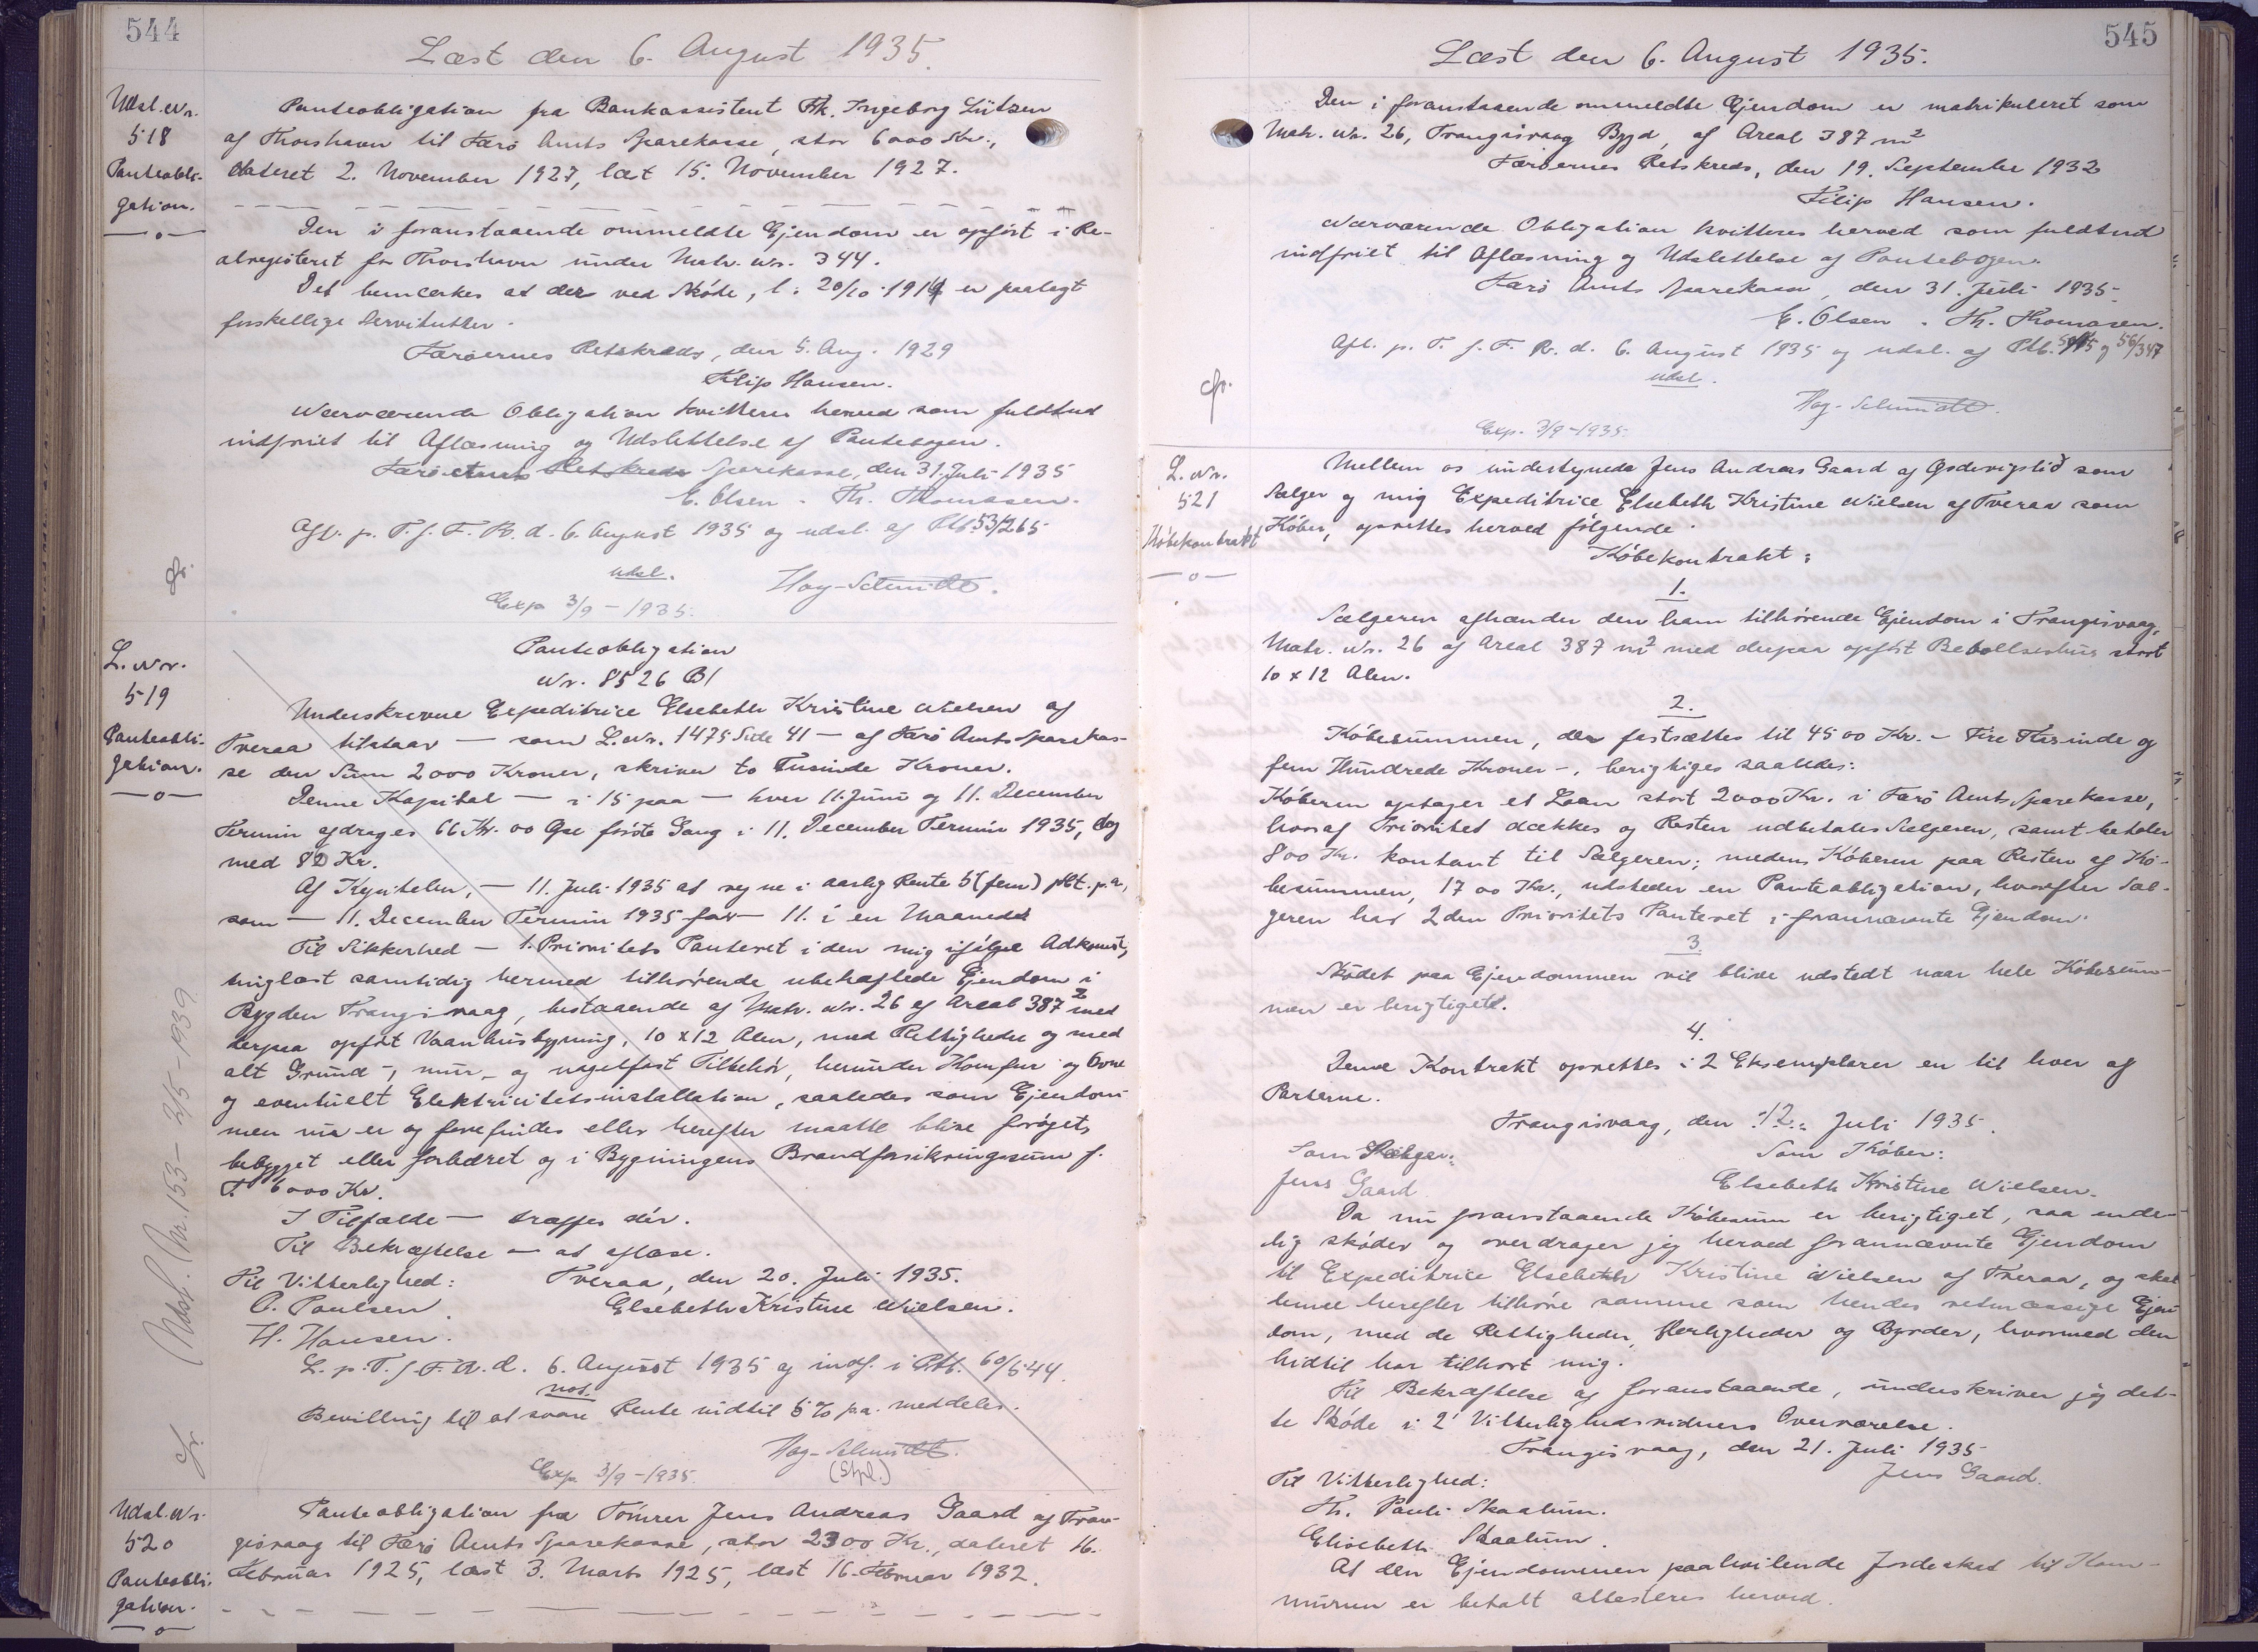 544
Læst den 6. August 1935.
Udsl. Nr.
518
Panteobli-
gation.
Panteobligation fra Bankassistent Frk. Ingeborg Lützen
af Thorshavn til Færö Amts Sparekasse, stor 6000 Kr.,
dateret 2. November 1927, læst 15. November 1927.
Den i foranstaaende ommeldte Ejendom er opført i Re-
alregisteret for Thorshavn under Matr. Nr. 344.
Det bemærkes at der ved Skøde, l. 20/10 1914 er paalagt
forskellige Servitutter.
Færøernes Retskreds, den 5. Aug. 1929
Filip Hansen.
Nærværende Obligation kvitteres herved som fuldtud
indfriet til Aflæsning og Udslettelse af Pantebogen.
Færö Amts Retskreds Sparekasse, den 31. Juli 1935
E. Olsen . Th. Thomassen.
Afl. p. T. f. F. R. d. 6. August 1935 og udsl. af Ptb. 53/265
udsl.
Hay-Schmidt.
Exp 3/9-1935.
cfr.
L. Nr.
519
Panteobli-
gation.
Panteobligation
Nr. 8526 Bl
Underskrevne Expeditrice Elsebeth Kristine Nielsen af
Tveraa tilstaar — som L. Nr. 1475 Side 41 — af Færö Amts Sparekas-
se den Sum 2000 Kroner, skriver to Tusinde Kroner.
Denne Kapital — i 15 paa — hver 11. Juni og 11. December
Termin afdrages 66 Kr. 00 Øre første Gang i 11. December Termin 1935, dog
med 82 Kr.
Af Kapitalen, — 11. Juli 1935 at regne i aarlig Rente 5 (fem) pCt. p.a,
som — 11. December Termin 1935 for — 11. i en Maaned
Til Sikkerhed — 1. Prioritets Panteret i den mig ifølge Adkomst,
tinglæst samtidig hermed tilhørende ubehæftede Ejendom i
Bygden Trangisvaag, bestaaende af Matr. Nr. 26 af Areal 387 2 med
derpaa opført Vaanhusbygning, 10 x 12 Alen, med Rettigheder og med
alt Grund-, mur- og nagelfast Tilbehör, herunder Komfur og Ovne
og eventuelt Elektricitetsinstallation, saaledes som Ejendom-
men nu er og forefindes eller herefter maatte blive forøget,
bebygget eller forbedret og i Bygningens Brandforsikringssum f.
T. 6000 Kr.
I Tilfælde — træffes dér.
Til Bekræftelse — at aflæse.
Til Vitterlighed: Tveraa, den 20. Juli 1935.
O. Paulsen. Elsebeth Kristine Nielsen.
H. Hansen.
L. p. T. f. F. R. d. 6. August 1935 og indf. i Ptb. 60/544.
not.
Bevilling til at svare Rente indtil 5% p.a. meddeles.
Hay-Schmidt.
(Stpl.)
Exp. 3/9-1935.
cfr.
Udsl. Nr. 153- 2/5-1939
Udsl. Nr.
520
Panteobli-
gation.
Panteobligation fra Tömrer Jens Andreas Gaard af Tran-
gisvaag til Færö Amts Sparekasse, stor 2300 Kr., dateret 16.
Februar 1925, læst 3. Marts 1925, læst 16. Februar 1932.
545
Læst den 6. August 1935.
Den i foranstaaende ommeldte Ejendom er matrikuleret som
Matr. Nr. 26, Trangisvaag Bygd, af Areal 387 m2
Færøernes Retskreds, den 19. September 1932
Filip Hansen.
Nærværende Obligation kvitteres herved som fuldtud
indfriet til Aflæsning og Udslettelse af Pantebogen.
Færö Amts Sparekasse, den 31. Juli 1935.
E. Olsen . Th. Thomassen.
Afl. p. T. f. F. R. d. 6. August 1935 og udsl. af Ptb. og 56/347
udsl.
Hay-Schmidt.
Exp. 3/9-1935.
cfr.
L. Nr.
521
Købekontrakt
Mellem os undertegnede Jens Andreas Gaard af som
Sælger og mig Expeditrice Elsebeth Kristine Nielsen af Tveraa som
Køber, oprettes herved følgende
Købekontrakt:
1.
Sælgeren afhænder den ham tilhørende Ejendom i Trangisvaag,
Matr. Nr. 26 af Areal 387 m2 med derpaa opført Beboelseshus stort
10 x 12 Alen.
2.
Købesummen, der fastsættes til 4500 Kr. - Fire Tusinde og
fem Hundrede Kroner -, berigtiges saaledes:
Køberen optager et Laan stort 2000 Kr. i Færö Amts Sparekasse,
hvoraf Prioritet dækkes og Resten udbetales Sælgeren, samt betaler
800 Kr. kontant til Sælgeren; medens Køberen paa Resten af Kö-
besummen, 1700 Kr., udsteder en Panteobligation, hvorefter Sæl-
geren har 2den Prioritets Panteret i forannævnte Ejendom.
3.
Skødet paa Ejendommen vil blive udstedt naar hele Købesum-
men er berigtiget.
4.
Denne Kontrakt oprettes i 2 Eksemplarer en til hver af
Parterne.
Trangisvaag, den 12. Juli 1935.
Som Sælger: Som Køber:
Jens Gaard Elsebeth Kristine Nielsen.
Da nu foranstaaende Købesum er berigtiget, saa ende-
lig skøder og overdrager jeg herved forannævnte Ejendom
til Expeditrice Elsebeth Kristine Nielsen af Tveraa, og skal
denne herefter tilhøre samme som hendes retmæssige Ejen-
dom, med de Rettigheder, Herligheder og Byrder, hvormed den
hidtil har tilhørt mig.
Til Bekræftelse af foranstaaende, underskriver jeg det-
te Skøde i 2 Vitterlighedsvidners Overværelse.
Trangisvaag, den 21. Juli 1935
Til Vitterlighed: Jens Gaard.
Th. Pauli Skaalum.
Elisebeth Skaalum.
At den Ejendommen paahvilende Jordeskat til Kom-
munen er betalt attesteres herved.